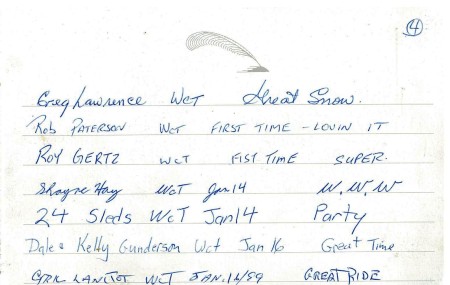 4
Greg Lawrence WCT Great Snow.
ROB PATERSON WCT FIRST TIME - LOVIN IT
ROY GERTZ WCT FIST TIME SUPER.
Shayne Hay WCT Jan 14 W.W.W
24 Sleds WCT Jan 14 Party
Dale & Kelly Gunderson Wct Jan 16 Great Time
WCT JAN. 16/99 GREAT RIDE